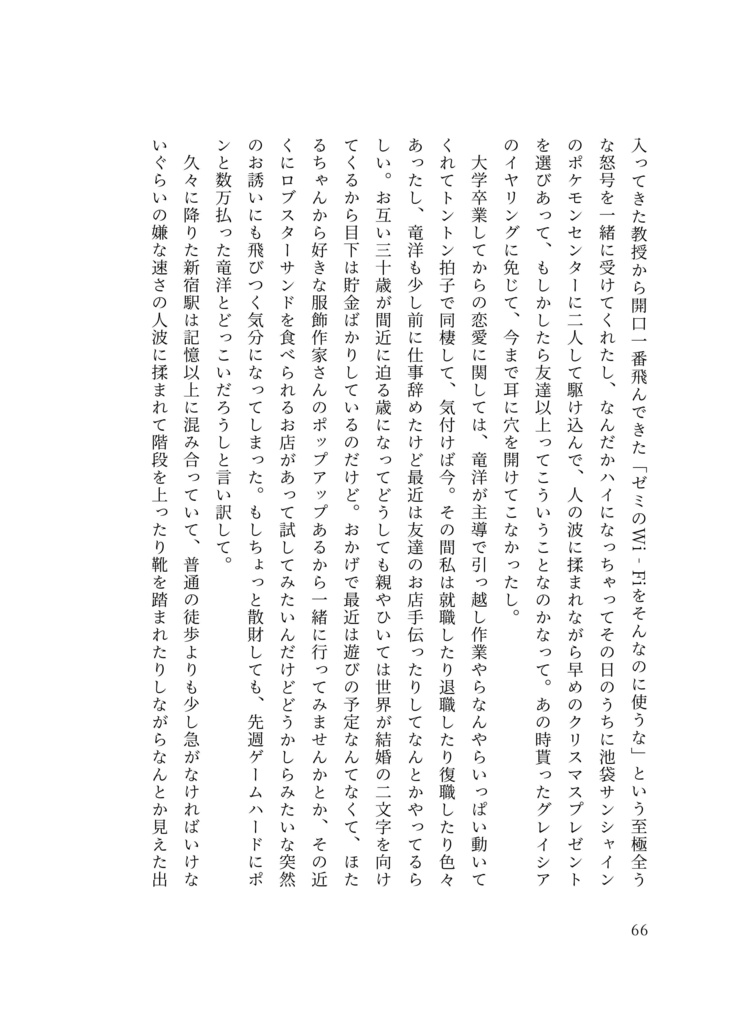 入ってきた教授から開口一番飛んできた「ゼミのWi-Fiをそんなのに使うな」という至極全う
な怒号を一緒に受けてくれたし、なんだかハイになっちゃってその日のうちに池袋サンシャイン
のポケモンセンターに二人して駆け込んで、人の波に揉まれながら早めのクリスマスプレゼント
を選びあって、もしかしたら友達以上ってこういうことなのかなって。あの時貰ったグレイシア
のイヤリングに免じて、今まで耳に穴を開けてこなかったし。
　大学卒業してからの恋愛に関しては、竜洋が主導で引っ越し作業やらなんやらいっぱい動いて
くれてトントン拍子で同棲して、気付けば今。その間私は就職したり退職したり復職したり色々
あったし、竜洋も少し前に仕事辞めたけど最近は友達のお店手伝ったりしてなんとかやってるら
しい。お互い三十歳が間近に迫る歳になってどうしても親やひいては世界が結婚の二文字を向け
てくるから目下は貯金ばかりしているのだけど。おかげで最近は遊びの予定なんてなくて、ほた
るちゃんから好きな服飾作家さんのポップアップあるから一緒に行ってみませんかとか、その近
くにロブスターサンドを食べられるお店があって試してみたいんだけどどうかしらみたいな突然
のお誘いにも飛びつく気分になってしまった。もしちょっと散財しても、先週ゲームハードにポ
ンと数万払った竜洋とどっこいだろうしと言い訳して。
　久々に降りた新宿駅は記憶以上に混み合っていて、普通の徒歩よりも少し急がなければいけな
いぐらいの嫌な速さの人波に揉まれて階段を上ったり靴を踏まれたりしながらなんとか見えた出
66